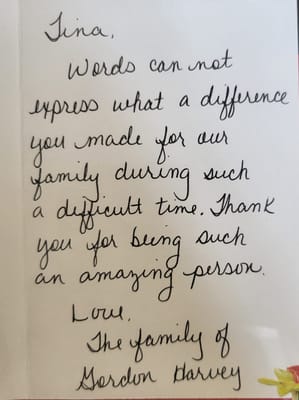 Tina,
Words can not
express what a difference
you made for our
family during such
a difficult time. Thank
you for being such
an amazing person.
Love,
The family of
Gordon Harvey